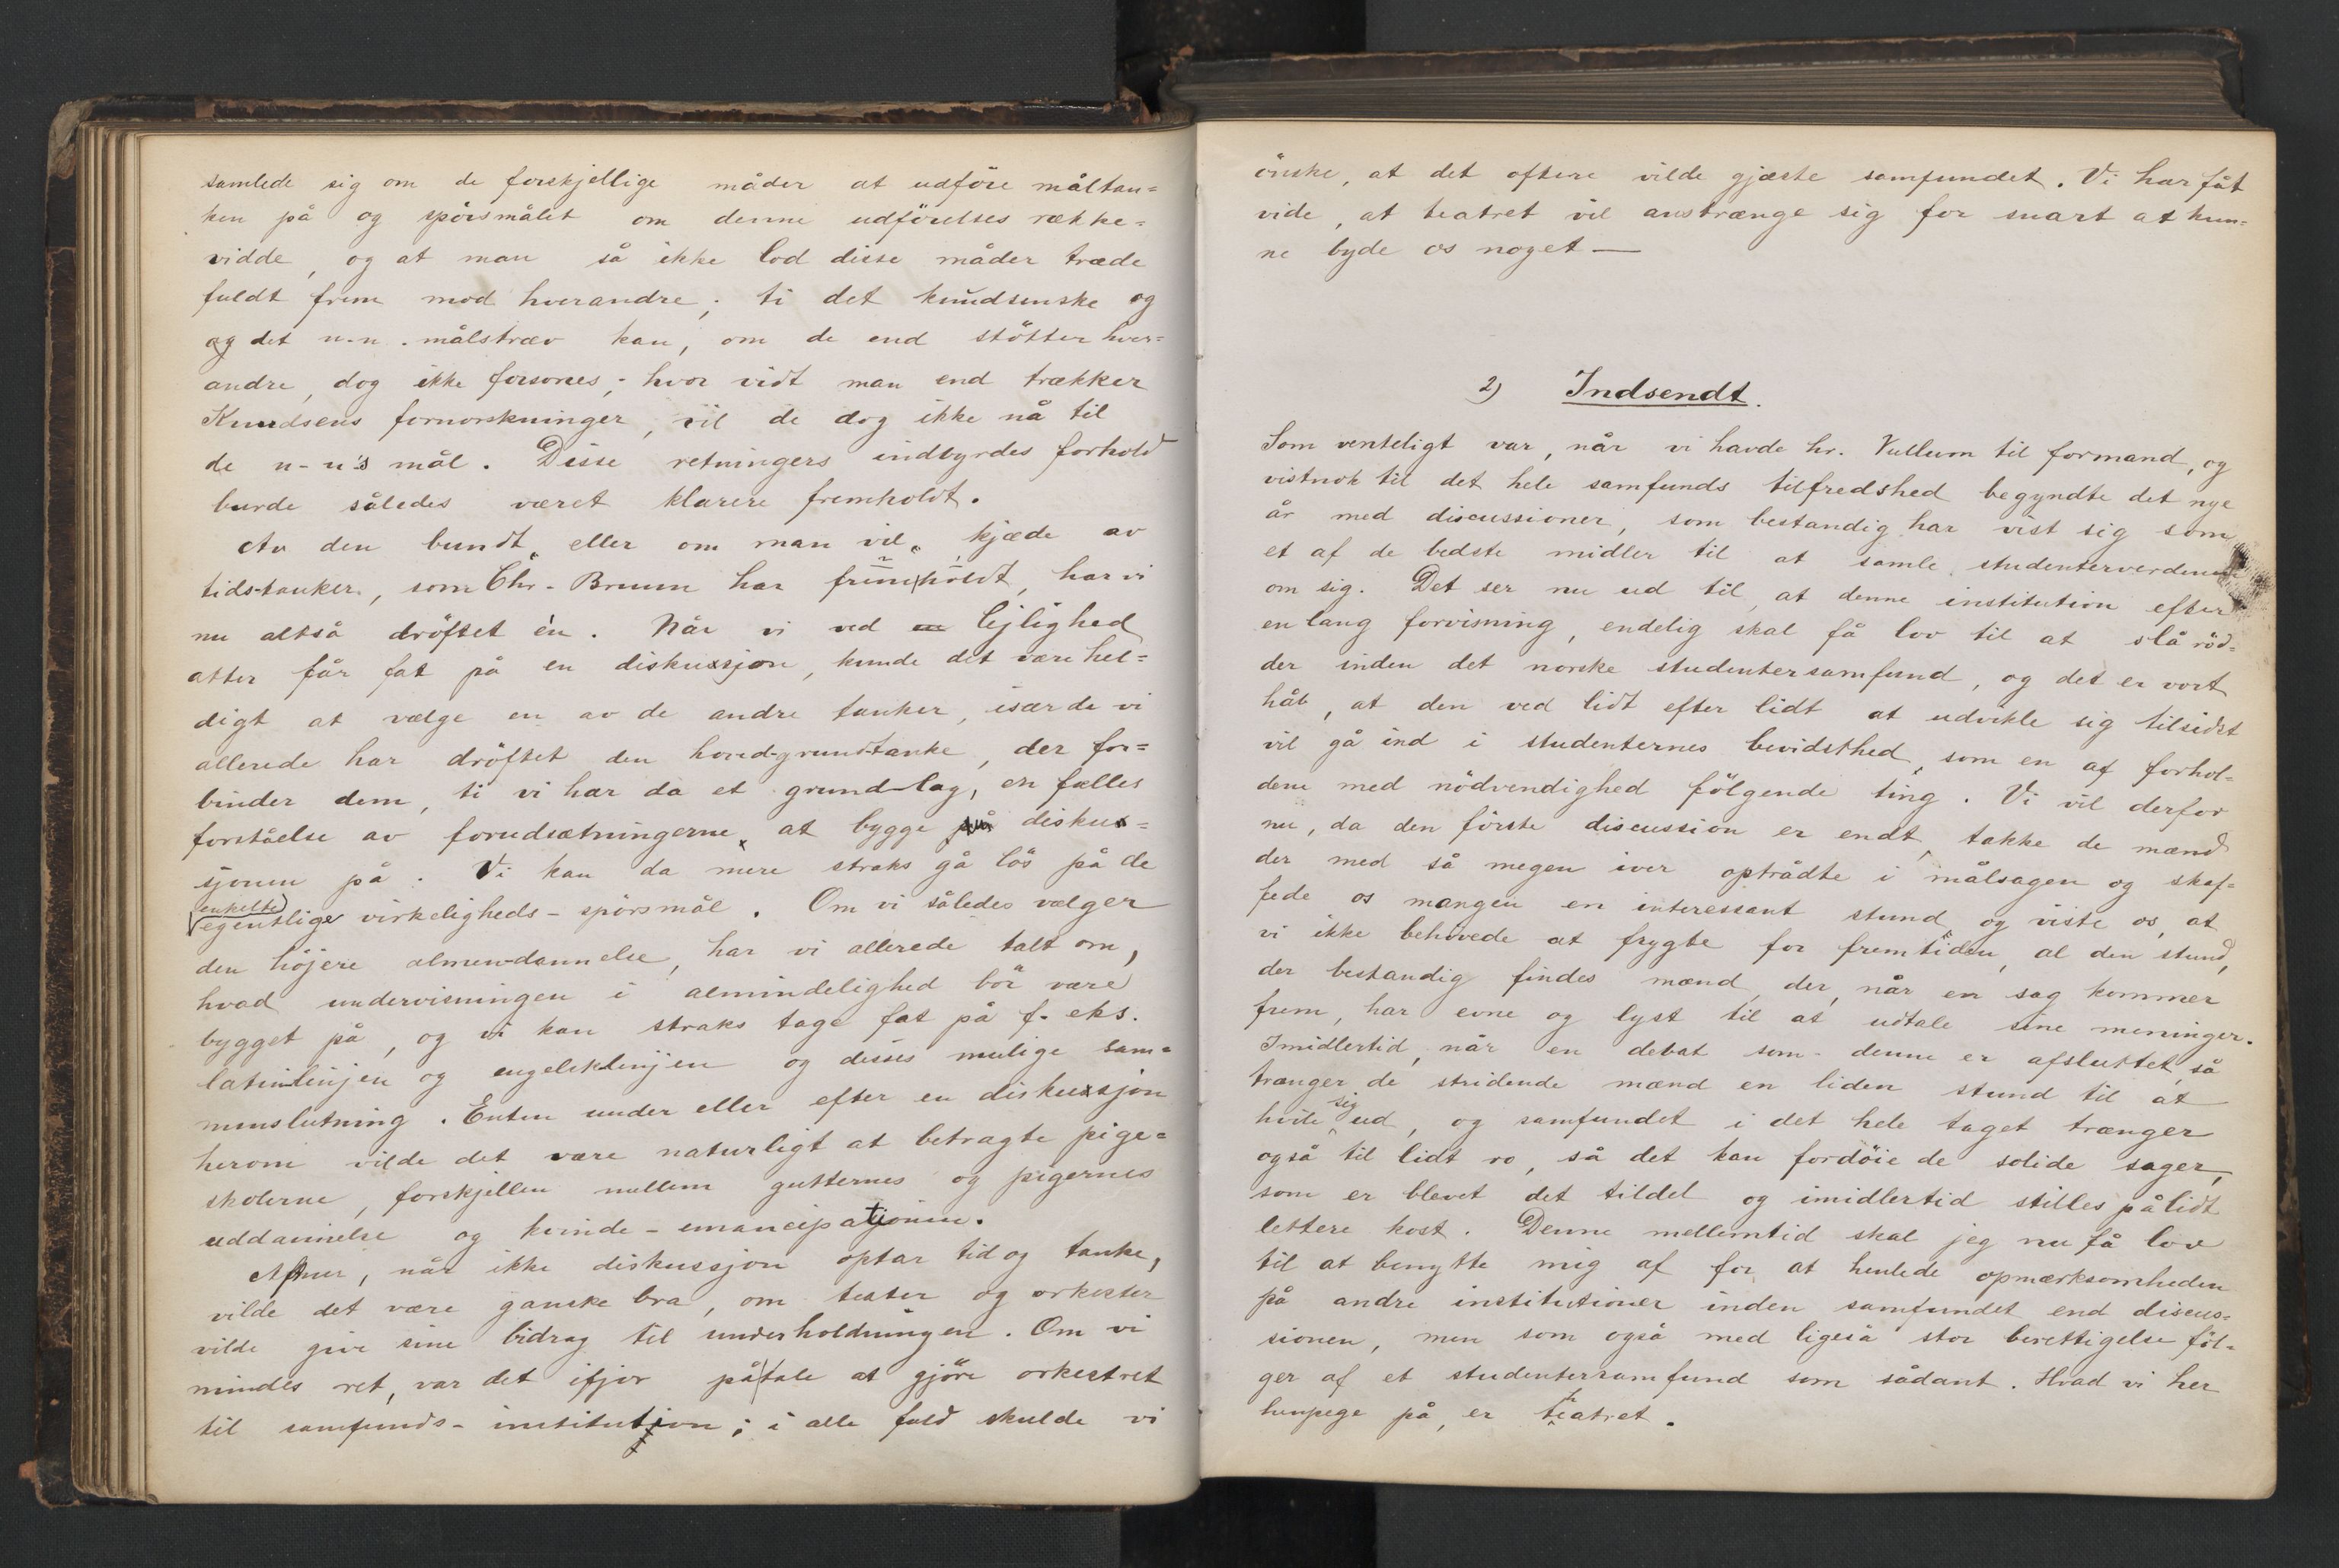 samlede sig om de forskjellige måder at udföre måltan=
ken på og spörsmålet om denne udförelses række=
vidde, og at man så ikke lod disse måder træde
fuldt frem mod hverandre; ti det knudsenske og
og det n-n. målstræv kan, om de end stötter hver=
andre, dog ikke forsones; hvor vidt man end trækker
Knudsens fornorskninger, vil de dog ikke nå til
de n-n's mål. Disse retningers indbyrdes forhold
burde således været klarere fremholdt.
Av den bundt, eller om man vil, kjæde av
tids-tanker, som Chr. Bruun har frem holdt, har vi
nu altså dröftet én. Når vi ved en lejlighed
atter får fat på en diskussjon, kunde det være hel=
digt at vælge en av de andre tanker, især da vi
allerede har dröftet den hoved-grundtanke, der for=
binder dem, ti vi har da et grund-lag, en fælles
forståelse av forudsætningerne, at bygge på diskus=
sjonen på. Vi kan da mere straks gå lös på de
enkelte
egentlige virkeligheds-spörsmål. Om vi således vælger
den höjere almen-dannelse, har vi allerede talt om,
hvad undervisningen i almindelighed bör være
bygget på, og vi kan straks tage fat på f. eks.
latinlinjen og engelsklinjen og disses mulige sam=
menslutning. Enten under eller efter en diskussjon
herom vilde det være naturligt at betragte pige=
skolerne, forskjellen mellem gutternes og pigernes
uddannelse og kvinde-emancipationen.
Men, når ikke diskussjon optar tid og tanke,
vilde det være ganske bra, om teater og orkester
vilde give sine bidrag til underholdningen. Om vi
mindes ret, var det ifjor på tale at gjöre orkestret
til samfunds-institution; i alle fald skulde vi
önske, at det oftere vilde gjæste samfundet. Vi har fåt
vide, at teatret vil anstrænge sig for snart at kun=
ne byde os noget —
2) Indsendt.
Som venteligt var, når vi havde hr. Vullum til formand, og
vistnok til det hele samfunds tilfredshed begyndte det nye
år med discussioner, som bestandig har vist sig som
et af de bedste midler til at samle studenterverdenen
om sig. Det ser nu ud til, at denne institution efter
en lang forvisning, endelig skal få lov til at slå röd=
der inden det norske studentersamfund, og det er vort
håb, at den ved lidt efter lidt at udvikle sig tilsidst
vil gå ind i studenternes bevidsthed, som en af forhol=
dene med nödvendighed fölgende ting. Vi vil derfor
nu, da den förste discussion er endt, takke de mænd
der med så megen iver optrådte i målsagen og skaf=
fede os mangen en interessant stund, og viste os, at
vi ikke behövede at frygte for fremtiden, al den stund,
der bestandig findes mænd, der, når en sag kommer
frem, har evne og lyst til at udtale sine meninger.
Imidlertid, når en debat som denne er afsluttet, så
trænger de stridende mænd en liden stund til at
hvile sig ud, og samfundet i det hele taget trænger
også til lidt ro, så det kan fordöie de solide sager,
som er blevet det tildel og imidlertid stilles på lidt
lettere kost. Denne mellemtid skal jeg nu få lov
til at benytte mig af for at henlede opmærksomheden
på andre institutioner inden samfundet end discus=
sionen, men som også med ligeså stor berettigelse föl=
ger af et studentersamfund som sådant. Hvad vi her
henpege på, er teatret.